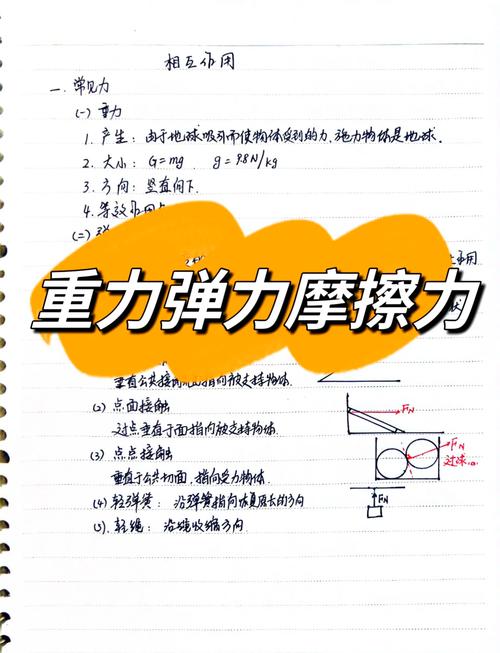 相互作用
一.常见力
(一)重力
1.产生：由于地球吸引而使物体受到的力,施力物体是地球.
2.大小：G=mg  g=9.8N/kg
3.方向：竖直向下.
4.等效作用点
(二)弹
作用
重力弹力摩擦力
状
垂直公共接触面指向被支持物体.
(2)点面接触
过点垂直于面指向被支持物体.
FN
(3)点点接触
FN
过球心.
垂直于公共切面,指向受力物体.
(4)轻弹簧：沿弹簧指向恢复原长的方向
FN
(5).轻绳：沿绳收缩方向.